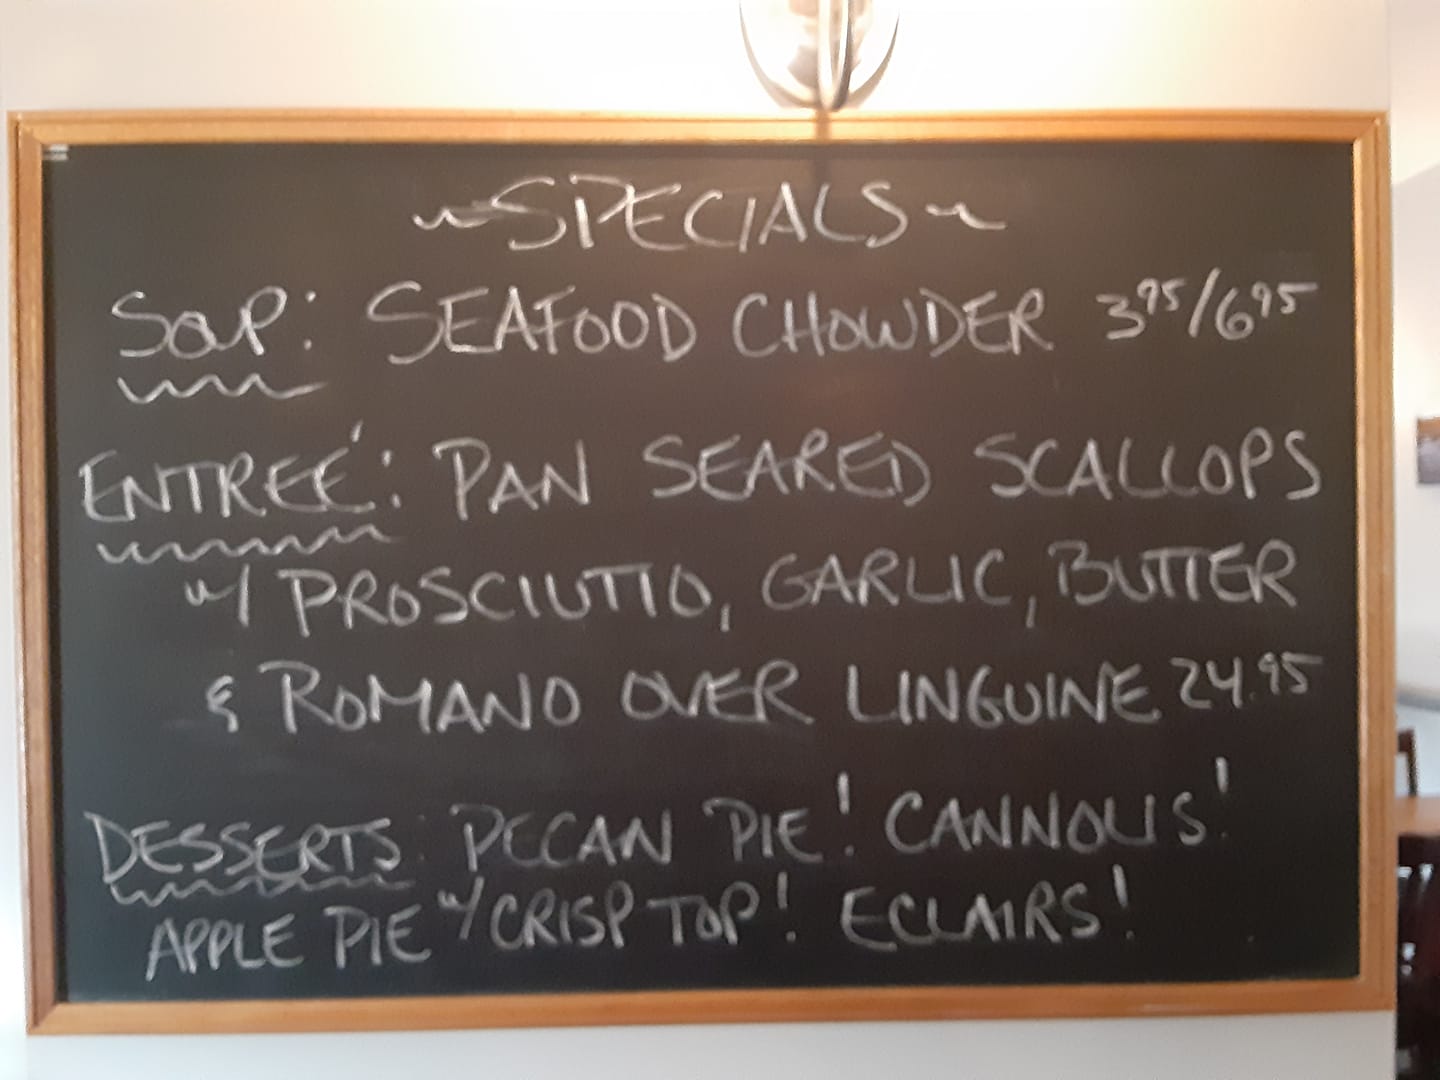 ~SPECIALS~
SOUP: SEAFOOD CHOWDER 3.95/6.95
ENTREÉ: PAN SEARED SCALLOPS
w/ PROSCIUTTO, GARLIC, BUTTER
& ROMANO OVER LINGUINE 24.95
DESSERTS: PECAN PIE! CANNOLIS!
APPLE PIE w/ CRISP TOP! ECLAIRS!